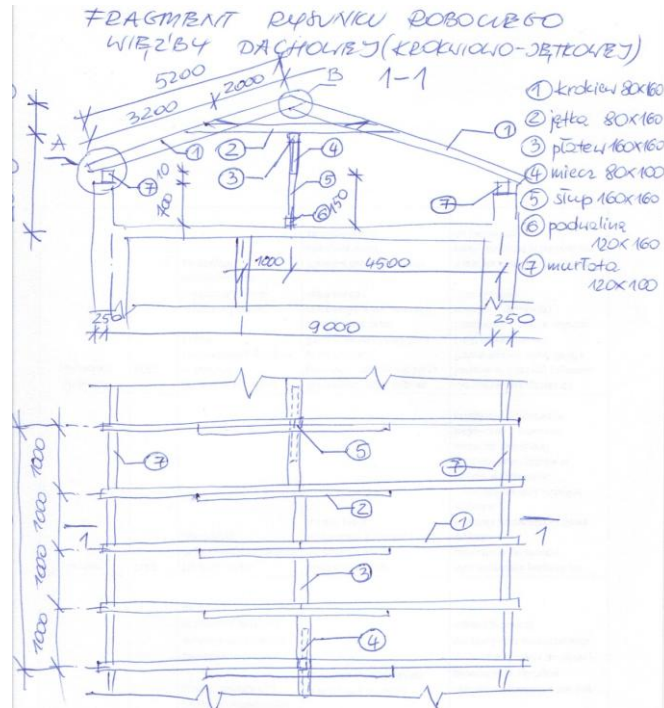 FRAGMENT RYSUNKU ROBOCZEGO
WIĘŹBY DACHOWEJ (KROKWIOWO-JĘTKOWEJ)
1-1
5200
3200
2000
B
A
① krokiew 80x160
② jętka 80x160
③ płatew 160x160
④ miecz 80x100
⑤ słup 160x160
⑥ podwalina
120x160
⑦ murłata
120x100
1
2
1
3
4
5
6
7
7
10
150
1000
4500
250
9000
250
5
7
7
2
1
1
1
3
4
1000
1000
1000
1000